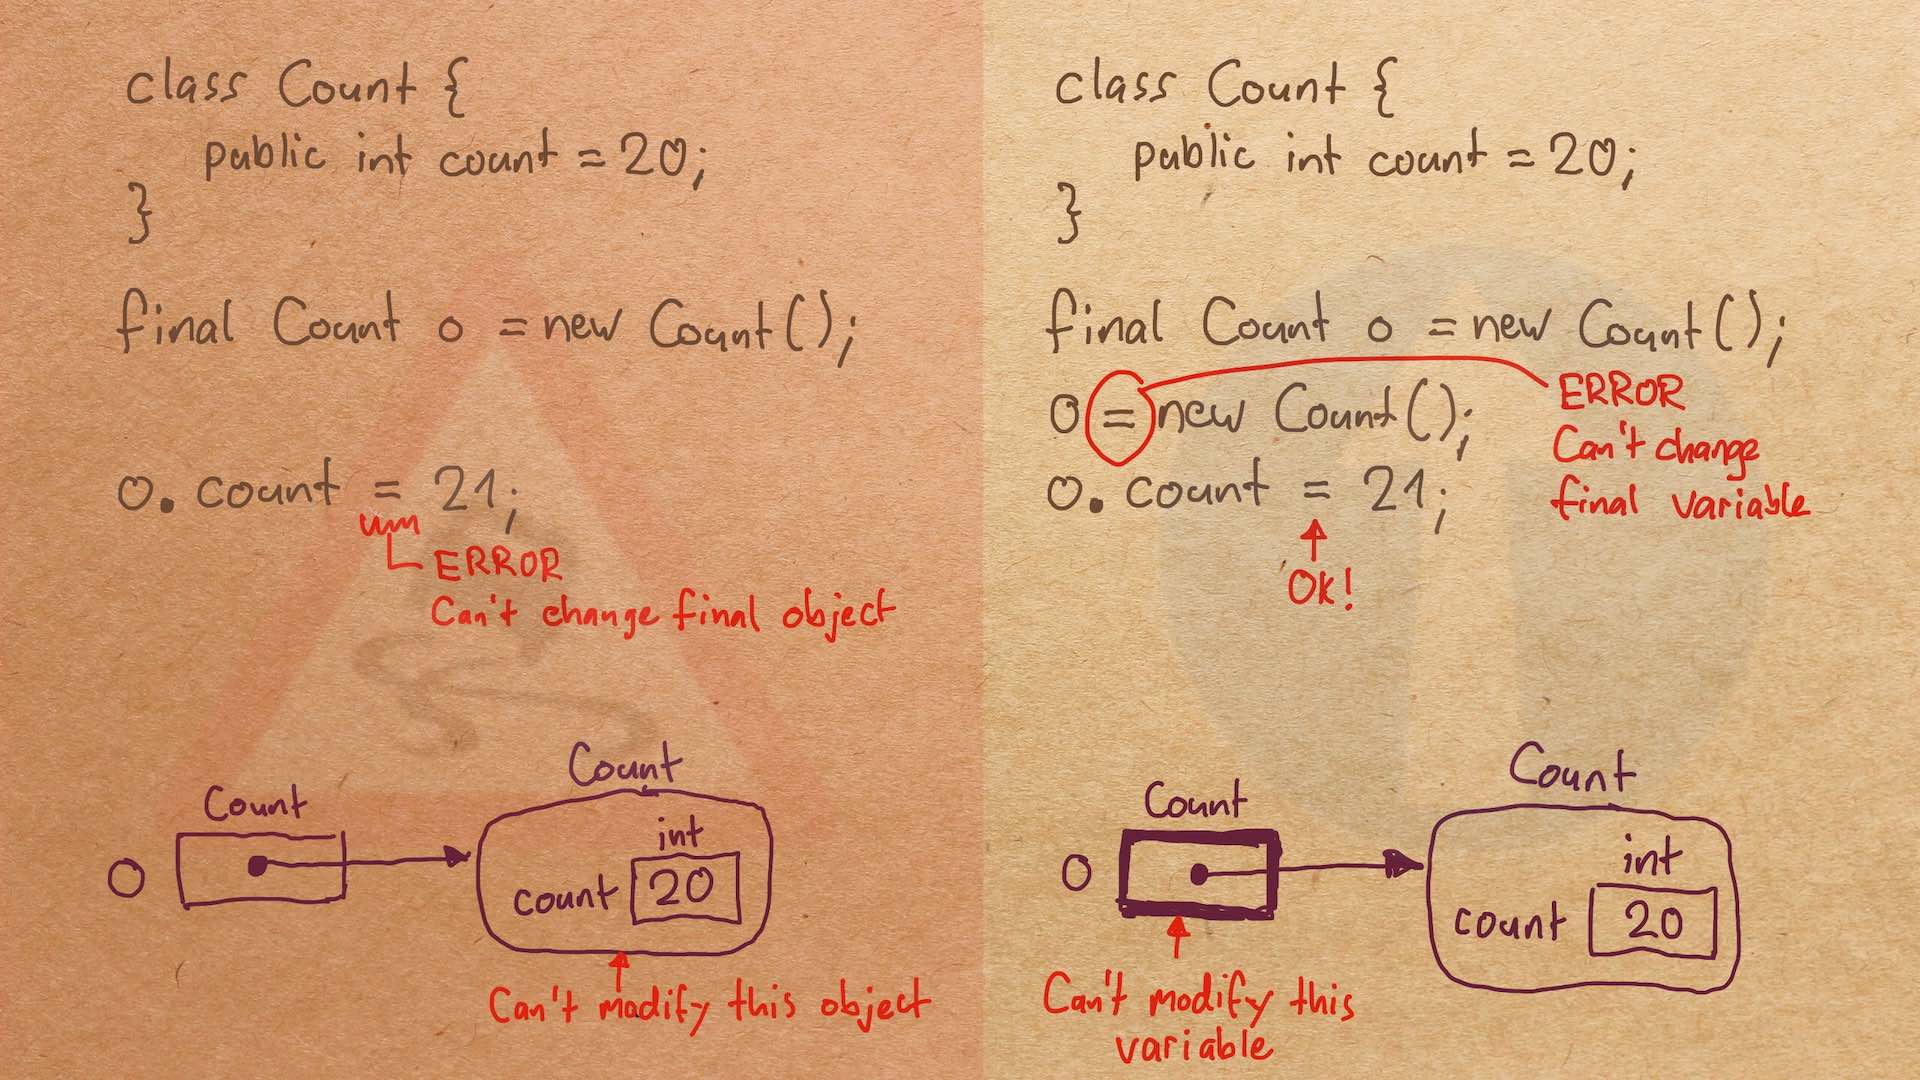 class Count {
public int count = 20;
}
final Count o = new Count();
o. count = 21;
ERROR
Can't change final object
Count
Count
int
o
count 20
Can't modify this object
class Count {
public int count = 20;
}
final Count o = new Count();
o = new Count();
ERROR
Can't change
final variable
o. count = 21;
OK!
Count
Count
int
o
count 20
Can't modify this
variable